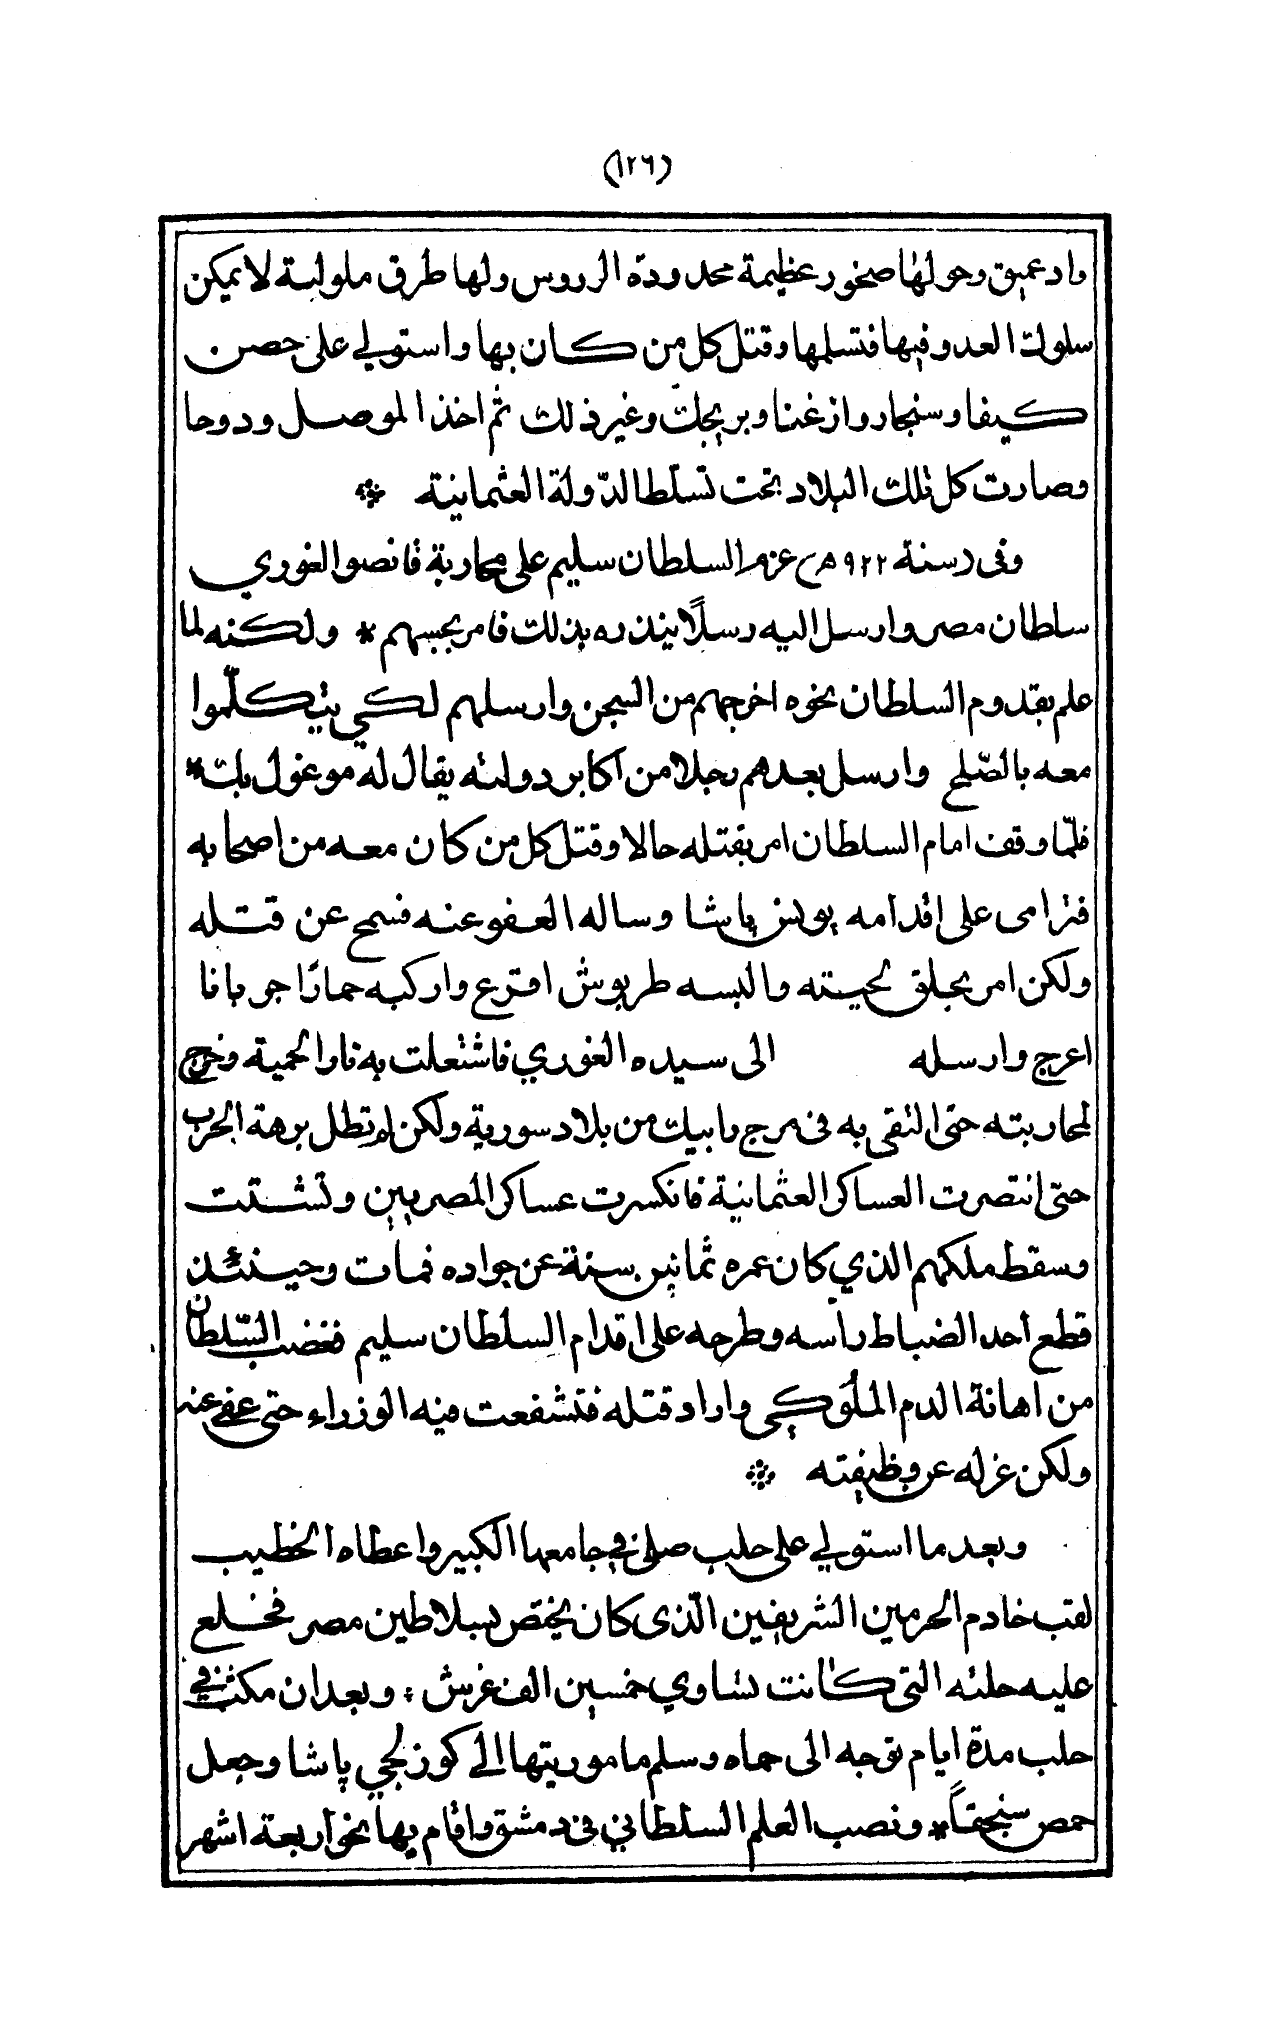 (١٢٦)
واد عميق وحولها صخور عظيمة محدودة الرروس ولها طرق ملولبة لا يمكن
سلوك العدو فيها فتسلمها وقتل كل من كان بها واستولي على حصن
كيفا وسنجار وارغنا وبريجك وغير ذلك ثم اخذ الموصل ودوحا
وصارت كل تلك البلاد تحت تسلط الدّولة العثمانية *
وفى (سنة ٩٢٢ هـ) عزم السلطان سليم على محاربة قانصو الغوري
سلطان مصر وارسل اليه رسلًا ينذره بذلك فامر بحبسهم * ولكنه لما
علم بقدوم السلطان نحوه اخرجهم من السجن وارسلهم لكي يتكلّموا
معه بالصّلح وارسل بعدهم رجلا من اكابر دولته يقال له موغول بك *
فلمّا وقف امام السلطان امر بقتله حالا وقتل كل من كان معه من اصحابه
فترامى على اقدامه يونس پاشا وساله العفو عنه فسمح عن قتله
ولكن امر بحلق لحيته والبسه طربوش اقرع واركبه حمارًا جربانا
اعرج وارسله الى سيده الغوري فاشتعلت به نار الحمية وخرج
لمحاربته حتى التقى به فى مرج دابيك من بلاد سورية ولكن لم تطل برهة الحرب
حتى انتصرت العساكر العثمانية فانكسرت عساكر المصريين وتشتت
وسقط ملكهم الذي كان عمره ثمانين سنة عن جواده فمات وحينئذ
قطع احد الضباط رأسه وطرحه على اقدام السلطان سليم فغضب السّلطان
من اهانة الدم الملُوكي واراد قتله فتشفعت فيه الوزراء حتى عفي عنه
ولكن عزله عن وظيفته *
وبعد ما استولي على حلب صلى في جامعها الكبير واعطاه الخطيب
لقب خادم الحرمين الشريفين الّذى كان يختص بسلاطين مصر فخلع
عليه حلته التي كانت تساوي خمسين الف غرش : وبعد ان مكث في
حلب مدة ايام توجه الى حماه وسلم ماموريتها الي كوزلجي پاشا وجعل
حمص سنجقاً * ونصب العلم السلطاني فى دمشق واقام بها نحو اربعة اشهر